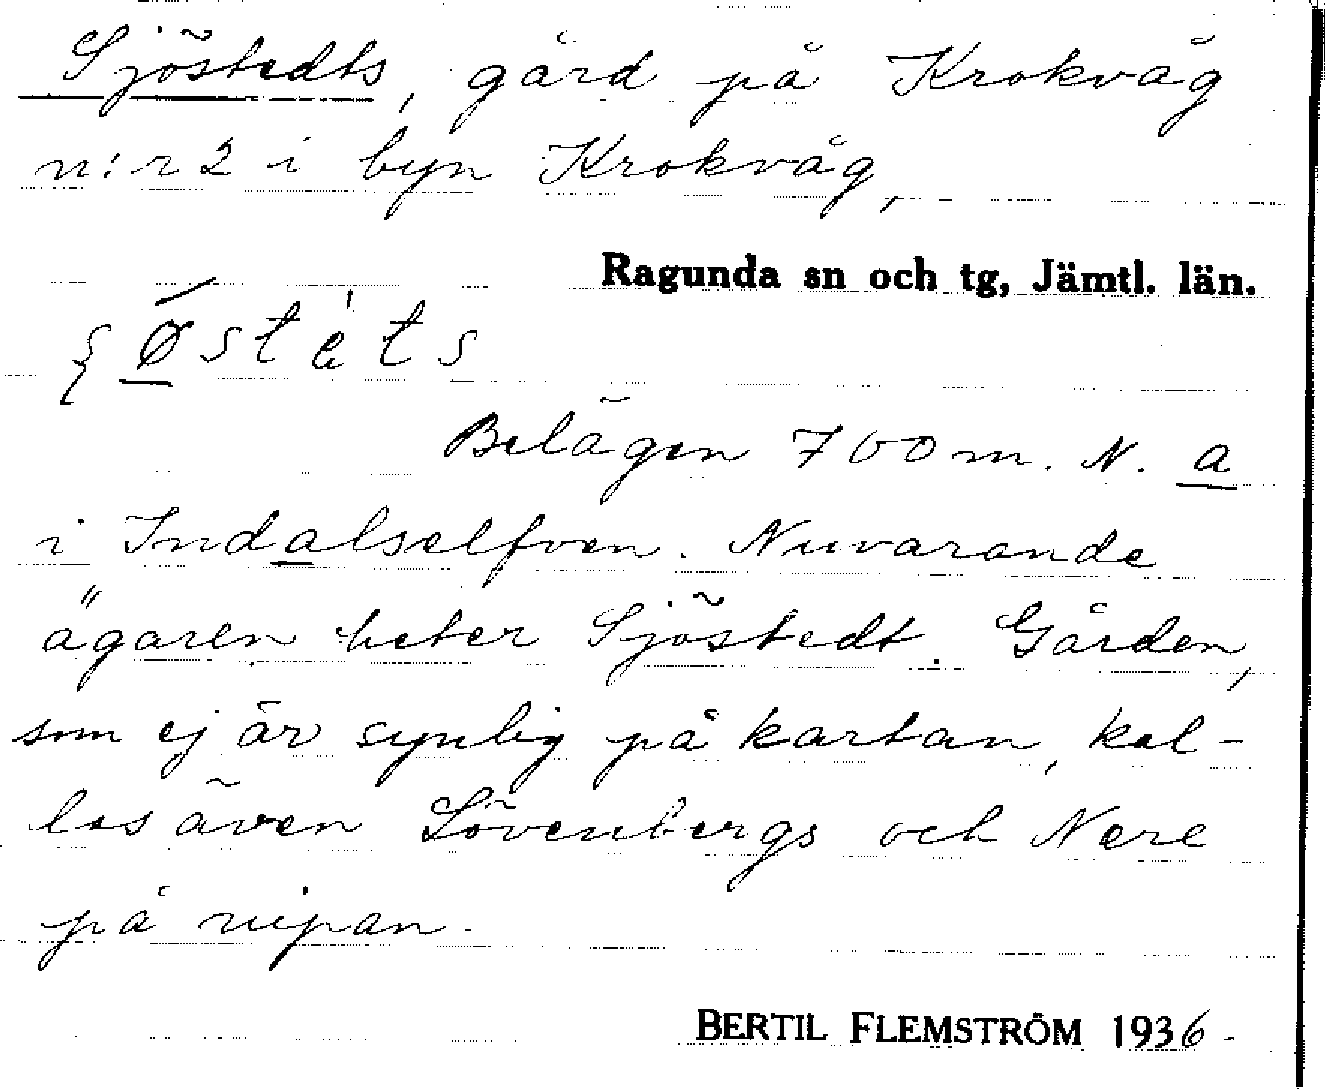 Sjöstedts, gård på Krokvåg
n:r 2 i byn Krokvåg,
Ragunda sn och tg, Jämtl. län.
ʂǿ̠stèts
Belägen 700 m. N. a
i Indalselfven. Nuvarande
ägaren heter Sjöstedt. Gården,
som ej är synlig på kartan, kal-
las även Lövenbergs och Nere
på nipan.
BERTIL FLEMSTRÖM 1936